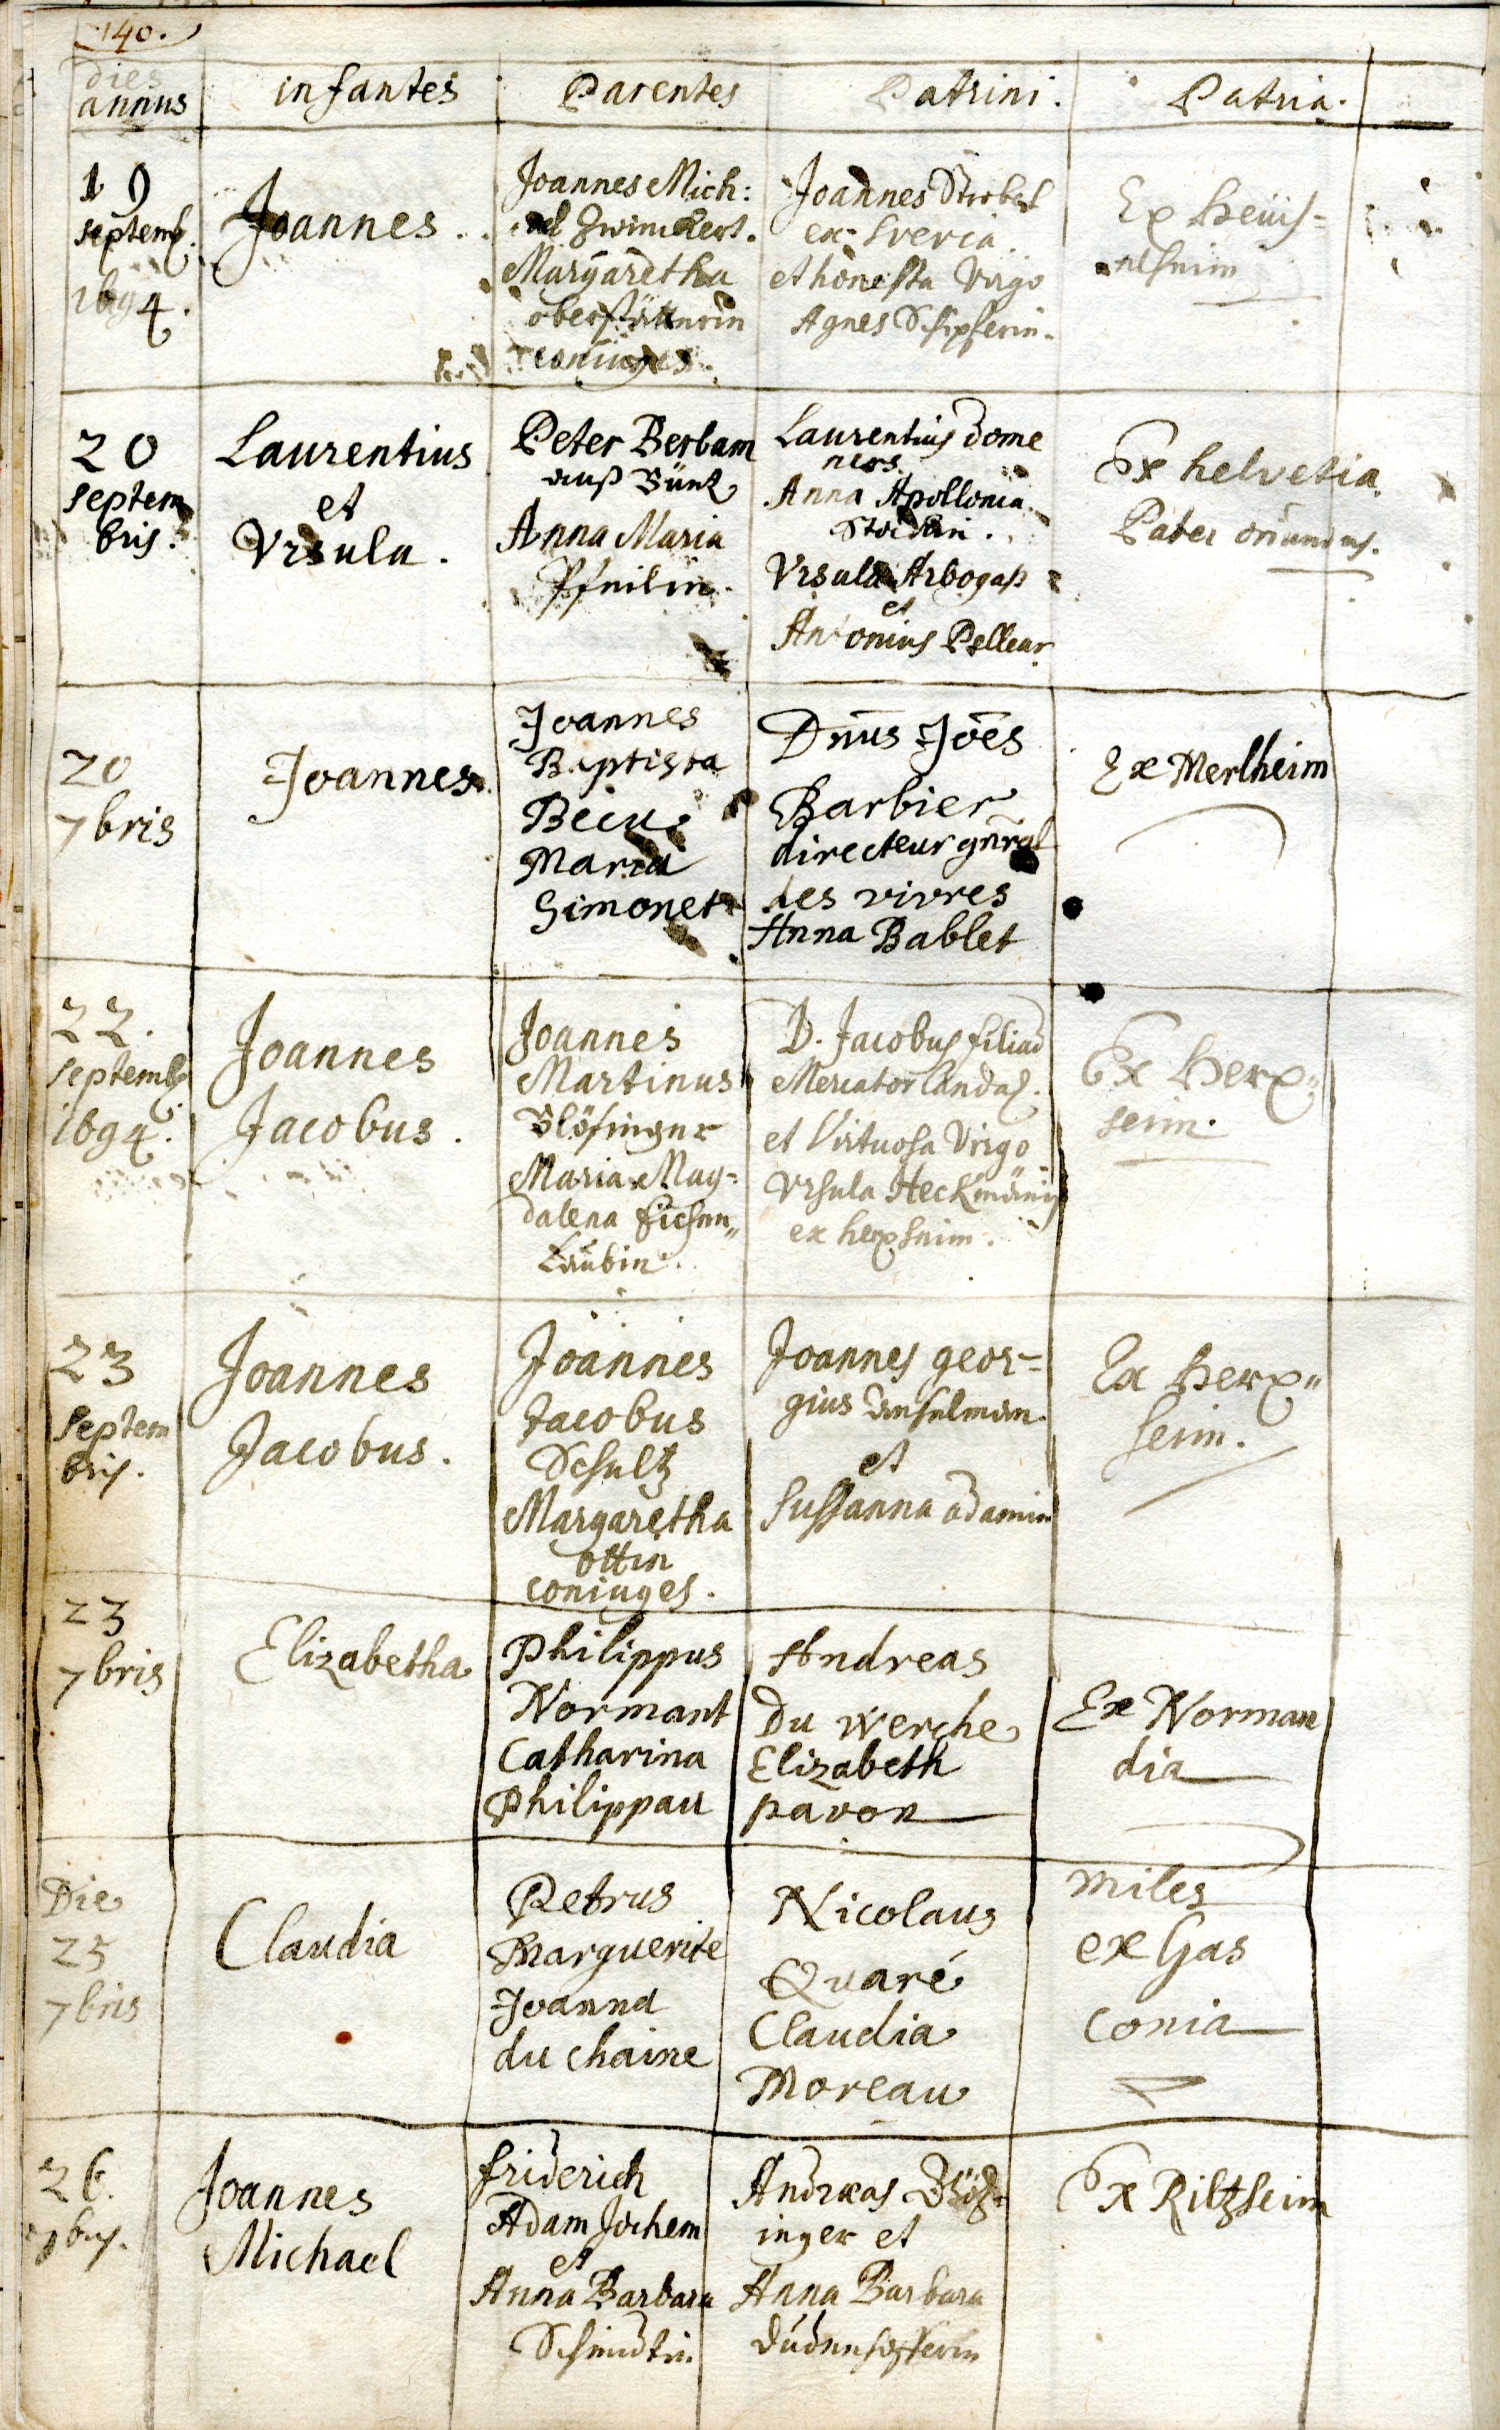 140.
dies
annus
infantes
Parentes
Patrini.
Patria.
19
septemb.
1694.
Joannes.
Joannes Mich:
ael Zwinckert.
Margaretha
coniuges.
Joannes Strobel
ex
et honesta Virgo
Agnes
Ex
20
septem
bris.
Laurentius
et
Vrsula.
Peter Berbam
auß Büntz
Anna Maria
Laurentius dome
ners.
Anna Apollonia
Vrsula Arbogast
et
Antonius Pellear
Ex helvetia.
Pater oriundus.
20
7bris
Joannes
Joannes
Baptista
Maria
Simonet
Dnus Joes
Barbier
directeur gnral
des vivres
Anna Bablet
Ex Merlheim
22.
septemb.
1694.
Joannes
Jacobus.
Joannes
Martinus
Blösinger
Maria Mag=
dalena Eichen„
Laubin.
D. Jacobus filiad
Mercator Landa.
et Virtuosa Virgo
Vrsula Heckmänin
ex herxheim.
Ex Herx=
heim.
23
septem
bris.
Joannes
Jacobus.
Joannes
Jacobus
Schultz
Margaretha
ottin
coniuges.
Joannes geor=
gius anselman.
et
Sussanna adamin
Ex Herx„
heim.
23
7bris
Elizabetha
Philippus
Normant
Catharina
Philippau
Andreas
Du werche
Elizabeth
pavon
Ex Norman
dia
Die
25
7bris
Claudia
Petrus
Marguerite
Joanna
du chaine
Nicolaus
Quaré
Claudia
Moreau
miles
ex Gas
conia
26.
7bris.
Joannes
Michael
friderich
Adam Jochem
et
Anna Barbara
Schmidtin
Andreas Blös=
inger et
Anna Barbara
dudenhöfferin
Ex Rültzheim